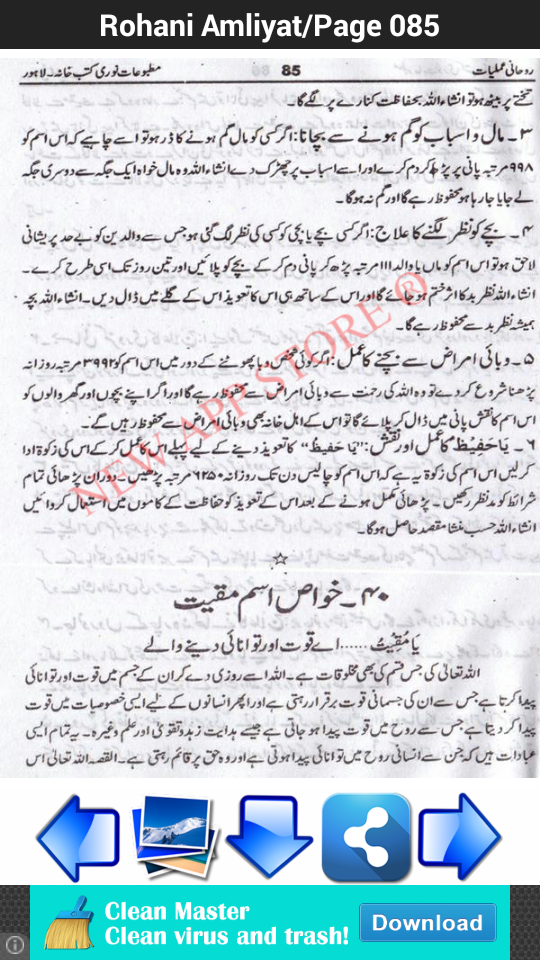 Rohani Amliyat/Page 085
روحانی عملیات 85 مطبوعات نوری کتب خانہ۔ لاہور
تختے پر بیٹھ ہو تو انشاء اللہ بحفاظت کنارے پر لگے گا۔
۳۔ مال و اسباب کو گم ہونے سے بچانا: اگر کسی کو مال گم ہونے کا ڈر ہو تو اسے چاہیے کہ اس اسم کو
۹۹۸ مرتبہ پانی پر پڑھ کر دم کرے اور اسے اسباب پر چھڑک دے انشاء اللہ وہ مال خواہ ایک جگہ سے دوسری جگہ
لے جایا جا رہا ہو محفوظ رہے گا اور گم نہ ہو گا۔
۴۔ بچے کو نظر لگنے کا علاج: اگر کسی بچے یا بچی کو کسی کی نظر لگ گئی ہو جس سے والدین کو بے حد پریشانی
لاحق ہو تو اس اسم کو ماں یا والد ۱۱۱ مرتبہ پڑھ کر پانی دم کر کے بچے کو پلائیں اور تین روز تک اسی طرح کرے۔
انشاء اللہ نظر بد کا اثر ختم ہو جائے گا اور اس کے ساتھ ہی اس کا تعویذ اس کے گلے میں ڈال دیں۔ انشاء اللہ بچہ
ہمیشہ نظر بد سے محفوظ رہے گا۔
۵۔ وبائی امراض سے بچنے کا عمل: اگر کوئی شخص وبا پھوٹنے کے دور میں اس اسم کو ۳۹۹۲ مرتبہ روزانہ
پڑھنا شروع کر دے تو وہ اللہ کی رحمت سے وبائی امراض سے محفوظ رہے گا اور اگر اپنے بچوں اور گھر والوں کو
اس اسم کا نقش پانی میں ڈال کر پلائے گا تو اس کے اہل خانہ بھی وبائی امراض سے محفوظ رہیں گے۔
۶۔ یَا حَفِیْظُ کا عمل اور نقش: "یَا حَفِیْظُ" کا تعویذ دینے کے لیے پہلے اس کا عمل کر کے اس کی زکوۃ ادا
کر لیں اس اسم کی زکوۃ یہ ہے کہ اس اسم کو چالیس دن تک روزانہ ۶۲۵۰ مرتبہ پڑھیں۔ دوران پڑھائی تمام
شرائط کو مد نظر رکھیں۔ پڑھائی مکمل ہونے کے بعد اس کے تعویذ کو حفاظت کے کاموں میں استعمال کروائیں
انشاء اللہ حسب منشا مقصد حاصل ہو گا۔
NEW APP STORE ®
۴۰۔ خواص اسم مقیت
یَا مُقِیْتُ ...... اے قوت اور توانائی دینے والے
اللہ تعالیٰ کی جس قسم کی بھی مخلوقات ہے۔ اللہ اسے روزی دے کر ان کے جسم میں قوت اور توانائی
پیدا کرتا ہے جس سے ان کی جسمانی قوت برقرار رہتی ہے اور پھر انسانوں کے لیے ایسی خصوصیات میں قوت
پیدا کر دیتا ہے جس سے روح میں قوت پیدا ہو جاتی ہے جیسے ہدایت زہد و تقویٰ اور علم وغیرہ۔ یہ تمام ایسی
عبادات ہیں کہ جن سے انسانی روح میں توانائی پیدا ہوتی ہے اور وہ حق پر قائم رہتی ہے۔ القصہ اللہ تعالیٰ اس
Clean Master
Clean virus and trash!
Download